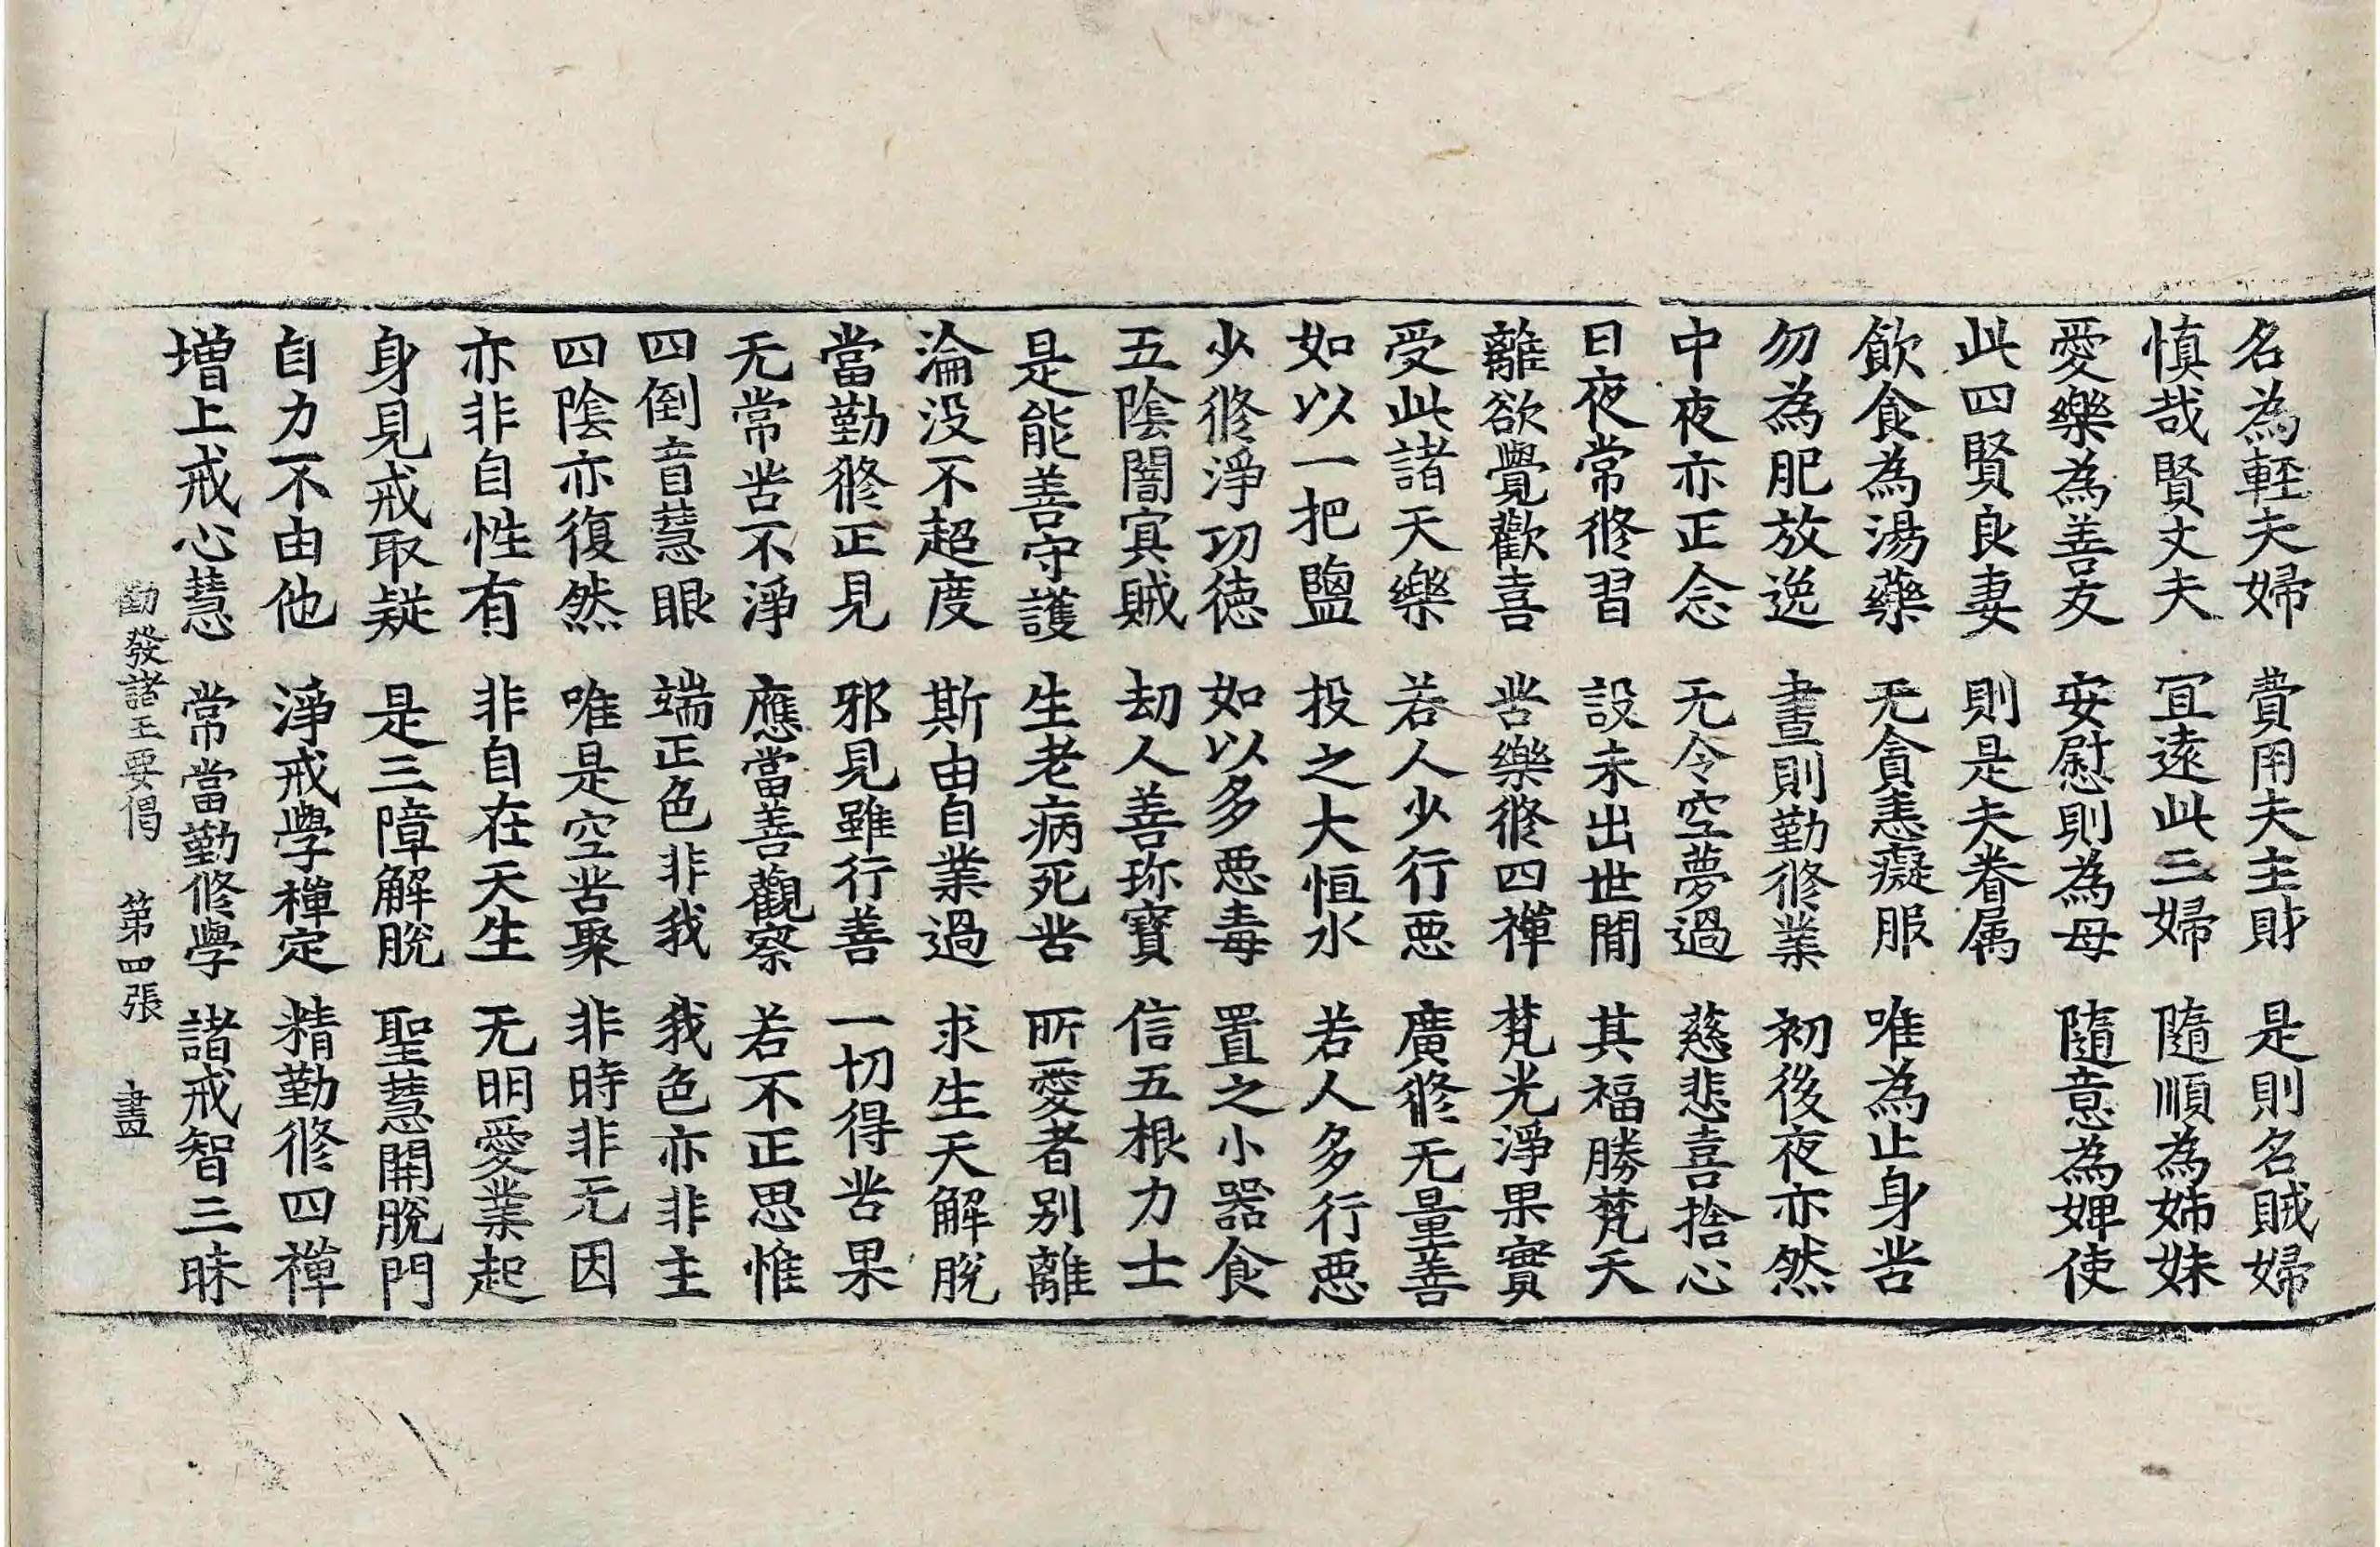 名為輕夫婦 費用夫主財 是則名賊婦
慎哉賢丈夫 冝遠此三婦 隨順為姊妹
愛樂為善友 安慰則為母 隨意為婢使
此四賢良妻 則是夫眷属
飲食為湯藥 无貪恚癡服 唯為止身苦
勿為肥放逸 晝則勤修業 初後夜亦然
中夜亦正念 无令空夢過 慈悲喜捨心
日夜常修習 設未出世閒 其福勝梵天
離欲覺歡喜 苦樂修四禪 梵光淨果實
受此諸天樂 若人少行惡 廣修无量善
如以一把鹽 投之大恒水 若人多行惡
少修淨功德 如以多惡毒 置之小器食
五陰闇冥賊 劫人善珎寶 信五根力士
是能善守護 生老病死苦 所愛者別離
淪没不超度 斯由自業過 求生天解脫
當勤修正見 邪見雖行善 一切得苦果
无常苦不淨 應當善觀察 若不正思惟
四倒盲慧眼 端正色非我 我色亦非主
四陰亦復然 唯是空苦聚 非時非无因
亦非自性有 非自在天生 无明愛業起
身見戒取疑 是三障解脫 聖慧開脫門
自力不由他 淨戒學禪定 精勤修四禪
增上戒心慧 常當勤修學 諸戒智三昧
勸發諸王要偈 第四張 盡